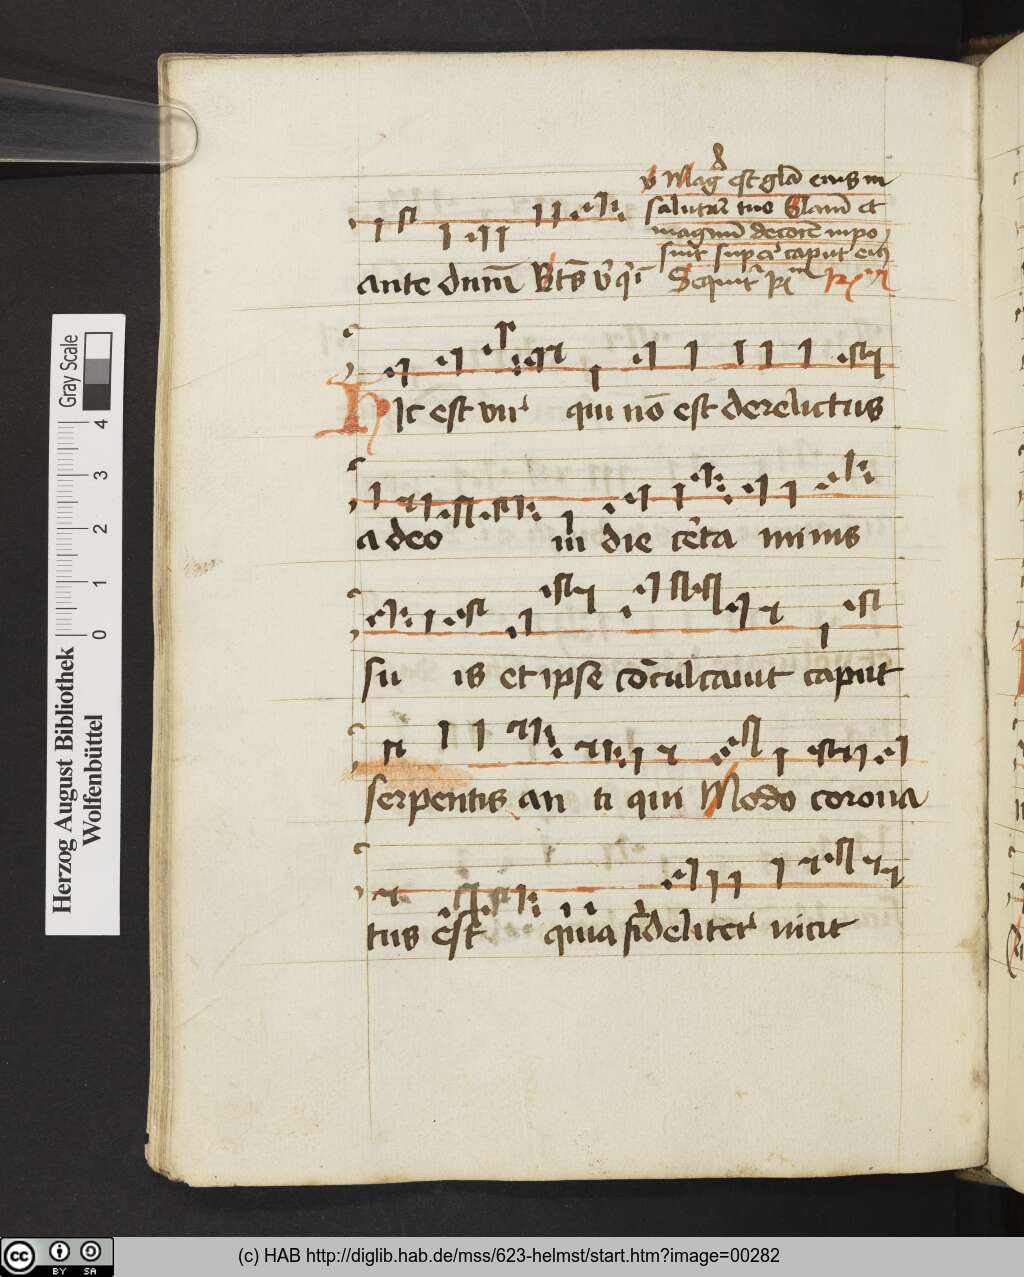 v Magͣ est gl̄a eius in
salutari tuo Glam̄ et
magnū decorē impo
suit super caput eiꝰ
ante dnm̄ Sequitr̄
Hic est vir qui nō est derelictus
a deo in die certa minis
su is et ipse cōculcauit caput
serpentis an ti qui Modo corona
tus est quia fideliter uicit
Herzog August Bibliothek
Wolfenbüttel
Gray Scale
0 1 2 3 4
cc BY SA
(c) HAB http://diglib.hab.de/mss/623-helmst/start.htm?image=00282